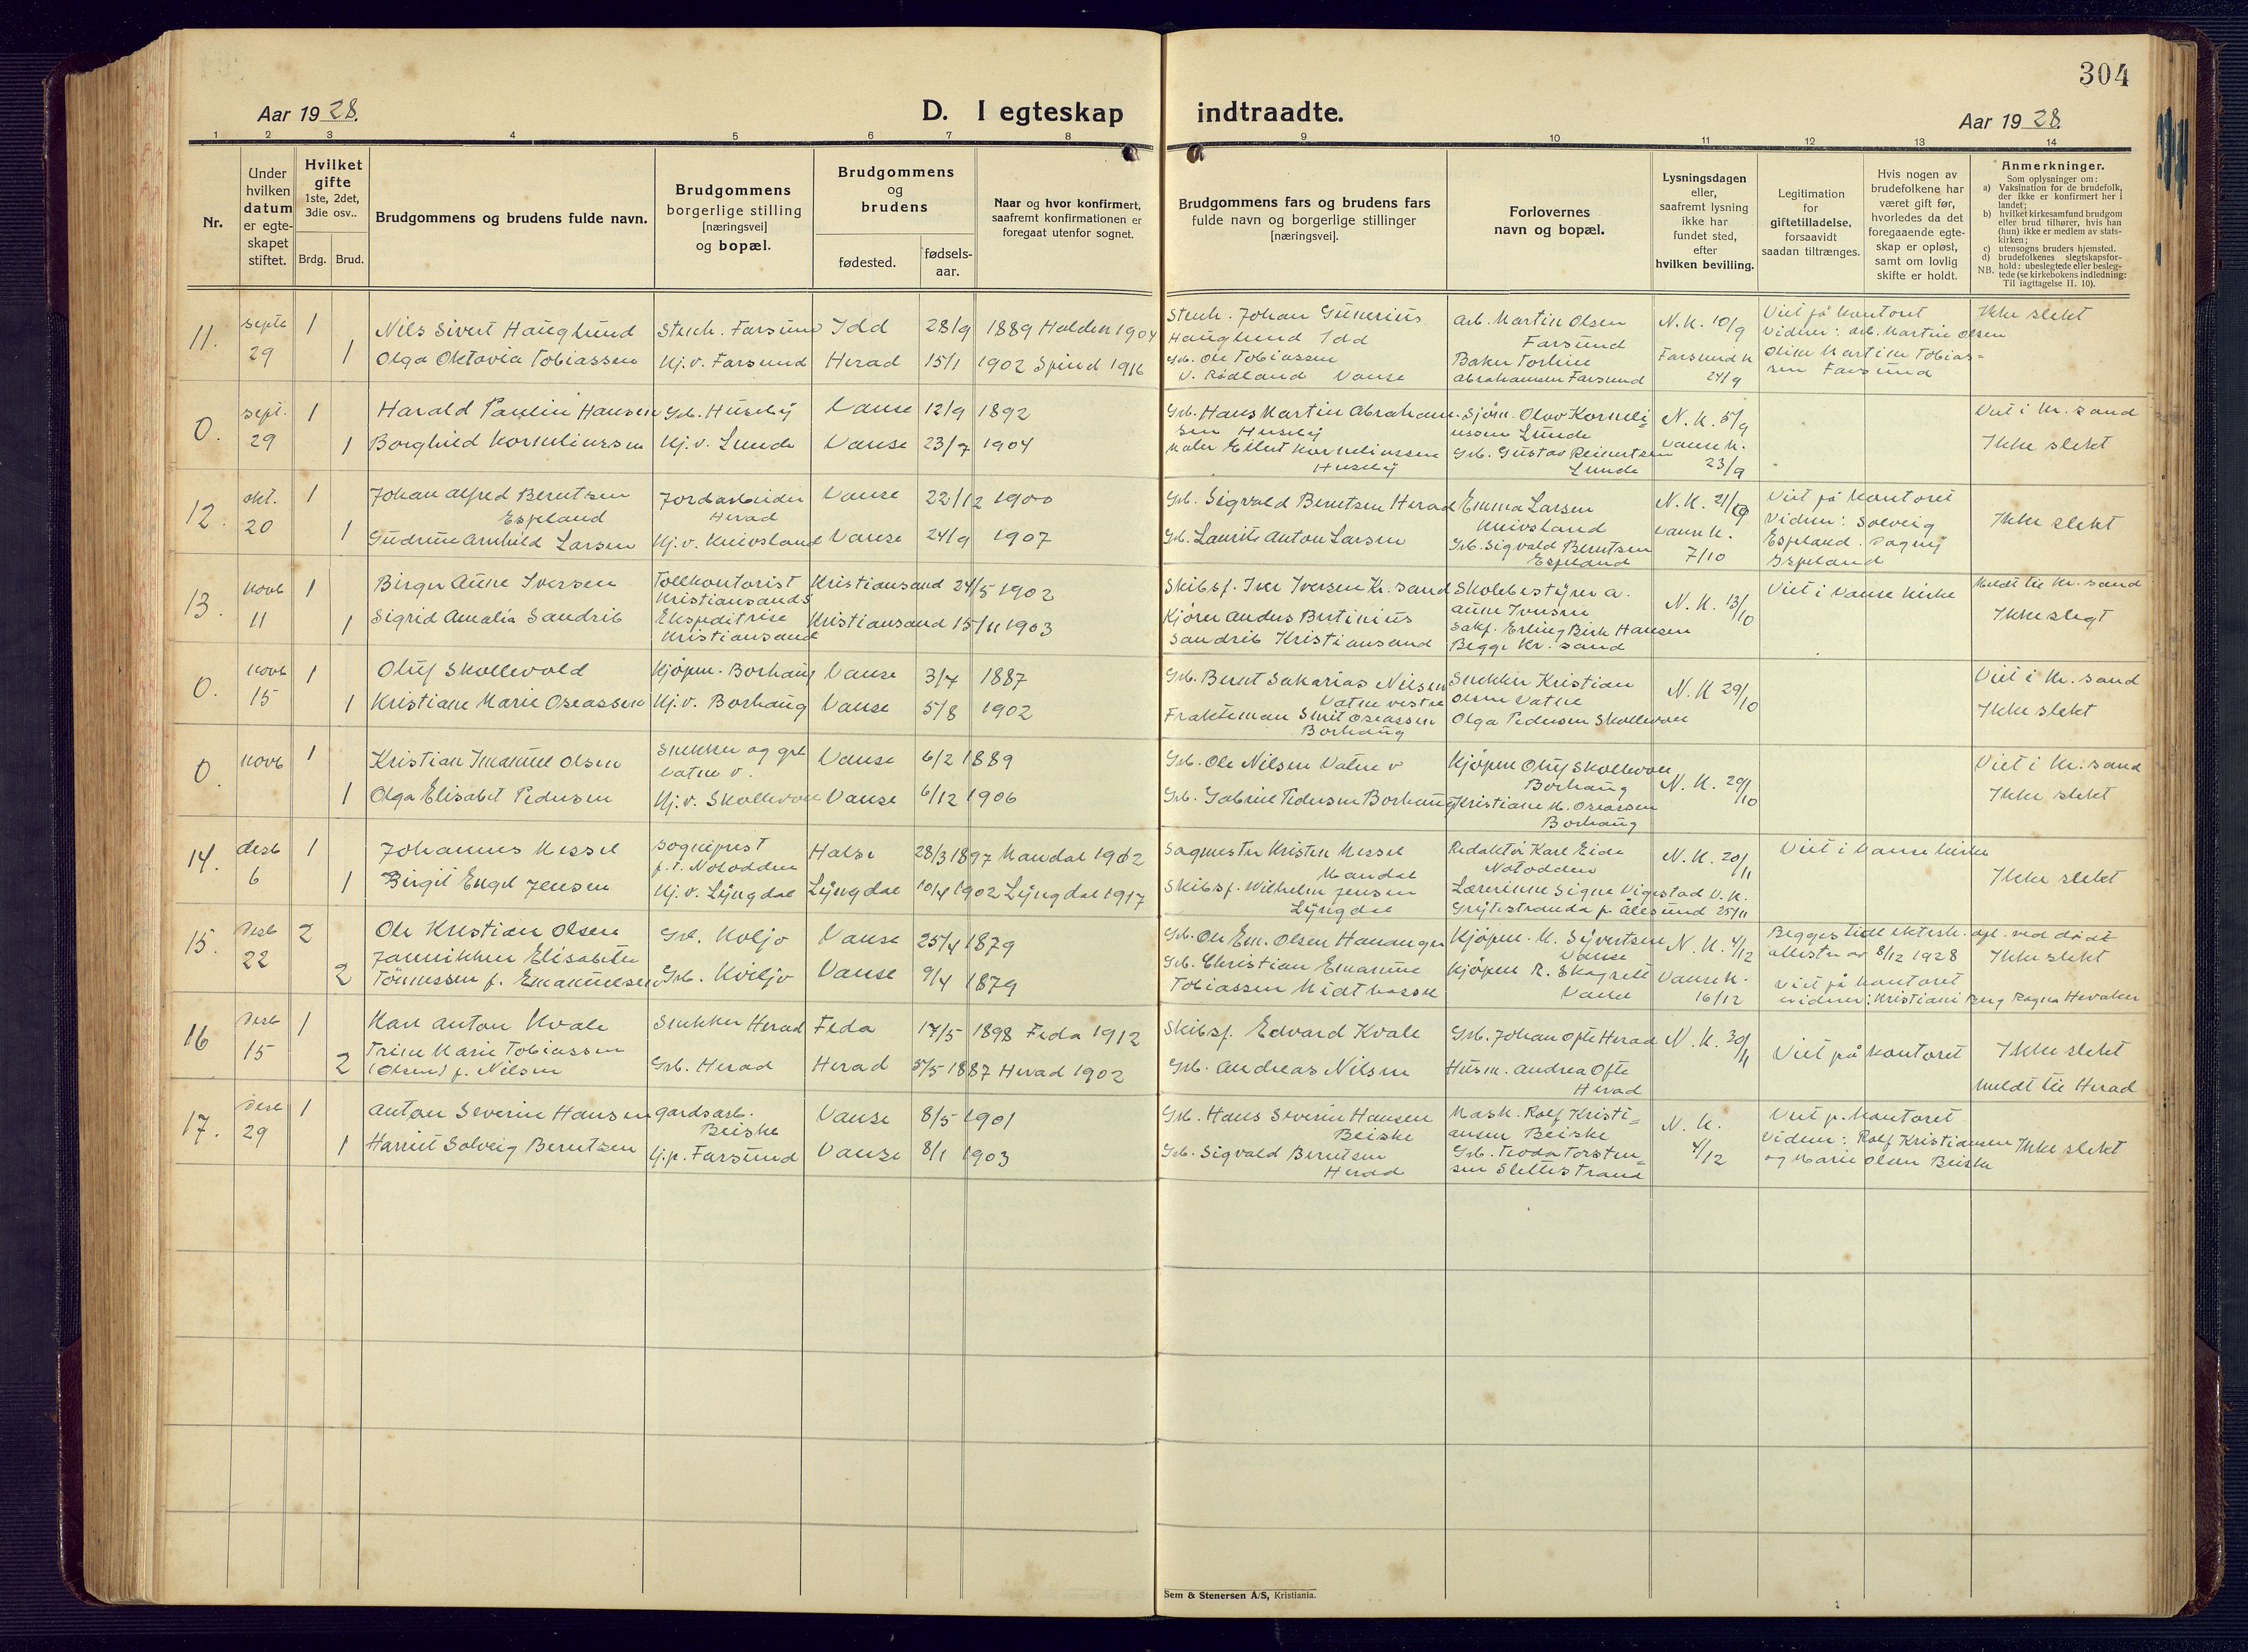 304
Aar 1928.
D. I egteskap indtraadte.
Aar 1928.
1 2 3 4 5 6 7 8 9 10 11 12 13 14
Nr.
Under hvilken datum er egte-skapet stiftet.
Hvilket gifte 1ste, 2det, 3die osv..
Brdg. Brud.
Brudgommens og brudens fulde navn.
Brudgommens borgerlige stilling [næringsvei] og bopæl.
Brudgommens og brudens
fødested.
fødsels-aar.
Naar og hvor konfirmert, saafremt konfirmationen er foregaat utenfor sognet.
Brudgommens fars og brudens fars fulde navn og borgerlige stillinger [næringsvei].
Forlovernes navn og bopæl.
Lysningsdagen eller, saafremt lysning ikke har fundet sted, efter hvilken bevilling.
Legitimation for giftetilladelse, forsaavidt saadan tiltrænges.
Hvis nogen av brudefolkene har været gift før, hvorledes da det foregaaende egte-skap er opløst, samt om lovlig skifte er holdt.
Anmerkninger.
Som oplysninger om:
a) Vaksination for de brudefolk, der ikke er konfirmert her i landet;
b) hvilket kirkesamfund brudgom eller brud tilhører, hvis han (hun) ikke er medlem av stats-kirken;
c) utensogns bruders hjemsted.
d) brudefolkenes slegtskapsfor-hold: ubeslegtede eller besleg-tede (se kirkebokens indledning:
NB. Til iagttagelse II. 10).
11. Septb 29 1 Nils Sivert Hauglund Stuck. Farsund Idd 28/9 1889 Halden 1904 Stuck. Johan Gunerius Hauglund Idd Arb. Martin Olsen Farsund N. K. 10/9 Viet på kontoret Ikke slekt
1 Olga Oktavia Tobiassen Hj. v. Farsund Herad 15/1 1902 Spind 1916 Gb. Ole Tobiassen V. Rødland Vanse Baker Torkin Abrahamsen Farsund Farsund K 24/9 Vidner: Arb. Martin Olsen Olsen Martin Tobiassen Farsund
0. Sept. 29 1 Harald Paulin Hansen Gb. Huseby Vanse 12/9 1892 Gb. Hans Martin Abrahamsen Huseby Sjöm. Olav Korneliussen Lunde N. K. 5/9 Viet i Kr. sand
1 Borghild Korneliussen Hj. v. Lunde Vanse 23/7 1904 Maler Eilert Korneliussen Huseby Gb. Gustav Reinertsen Lunde Vanse K. 23/9 Ikke slekt
12. Okt. 20 1 Johan Alfred Berntsen Espeland Jordarbeider Herad Vanse 22/12 1900 Gb. Sigvald Berntsen Herad Emma Larsen Knivsland N. K. 21/9 Viet på kontoret
1 Gudrun Arnhild Larsen Hj. v. Knivsland Vanse 24/9 1907 Gb. Laurits Anton Larsen Gb. Sigvald Berntsen Espeland Vanse K. 7/10 Vidner: Solveig Espeland. Dagny Espeland Ikke slekt
13. Novb 11 1 Birger Aune Iversen Tollkontorist Kristiansands Kristiansand 24/5 1902 Skibsf. Iver Iversen Kr. sand Skolebestyrer A. Aune Iversen N. K. 13/10 Viet i Vanse kirke Meldt til Kr. sand
1 Sigrid Amalia Sandrib Ekspeditrise Kristiansand Kristiansand 15/11 1903 Kjörer Anders Bertinius Sandrib Kristiansand Sakf. Erling Birk Hansen Begge Kr. sand Ikke slegt
0. Novb 15 1 Oluf Skollevold Kjöpm. Borhaug Vanse 3/7 1887 Gb. Bernt Sakarias Nilsen Vatne vestre Snekker Kristian Olsen Vatne N. K 29/10 Viet i Kr. sand
1 Kristiane Marie Oseassen Hj. v. Borhaug Vanse 5/8 1902 Frakteman Smit Oseassen Borhaug Olga Pedersen Skollevoll Ikke slekt
0 Novb 1 Kristian Imanuel Olsen Snekker og gb Vatne v. Vanse 6/2 1889 Gb. Ole Nilsen Vatne v Kjöpm Oluf Skollevoll Borhaug N. K. 29/10 Viet i Kr. sand
1 Olga Elisabet Pedersen Hj. v. Skollevoll Vanse 6/12 1906 Gb. Gabriel Pedersen Borhaug Kristiane M. Oseassen Borhaug Ikke slekt
14. Desb 6 1 Johannes Messel Sogneprest f. t. Notodden Halse 28/3 1897 Mandal 1912 Sagmester Kristen Messel Mandal Redaktör Karl Eide Notodden N. K. 20/11 Viet i Vanse kirke
1 Birgit Engel Jensen Hj. v. Lyngdal Lyngdal 10/4 1902 Lyngdal 1917 Skibsf. Wilhelm Jensen Lyngdal Lærerinne Signe Vigestad Grytestranda p. Ålesund V. K. 25/11 Ikke slekt
15. Desb 22 2 Ole Kristian Olsen Gb. Kviljo Vanse 25/4 1879 Gb. Ole Em. Olsen Hananger Kjöpm. M. Syvertsen Vanse N. K. 4/12 Begges tidl ektesk. opl. ved död attester av 8/12 1928
2 Jannikken Elisabeta Tönnessen f. Emanuelsen Gb. Kviljo Vanse 9/4 1879 Gb. Christian Emanuel Tobiassen Midthassel Kjöpm R. Skagestt Vanse Vanse K. 16/12 Viet på kontoret Vidner: Kristiani Berg Ragna Hevaker Ikke slekt
16 Desb 15 1 Karl Anton Kvale Snekker Herad Feda 17/5 1898 Feda 1912 Skibsf. Edvard Kvale Gb. Johan Ofte Herad N. K. 30/11 Viet på kontoret Ikke slekt
2 Trine Marie Tobiassen (Olsen) f. Nilsen Gb. Herad Herad 5/5 1887 Herad 1902 Gb. Andreas Nilsen Husm. Andrea Ofte Herad Meldt til Herad
17. Desb 29 1 Anton Severin Hansen Gardsarb. Beiske Vanse 8/5 1901 Gb. Hans Severin Hansen Beiske Mask. Rolf Kristiansen Beiske N. K. 4/12 Viet p. kontoret
1 Harriet Solveig Berntsen Hj. p. Farsund Vanse 8/1 1903 Gb. Sigvald Berntsen Herad Gb. Teodor Torstensen Slettestrand Vidner: Rolf Kristiansen og Marie Olsen Beiske Ikke slekt
Sem & Stenersen A/S, Kristiania.